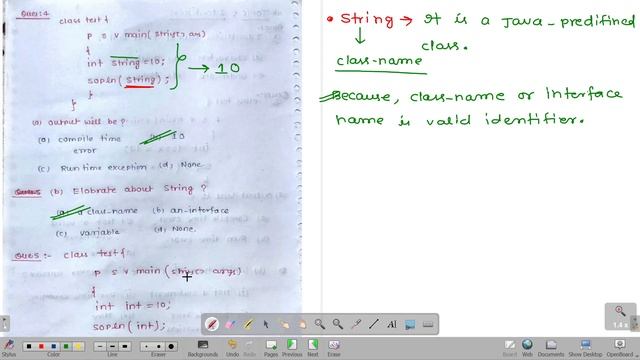 Ques:4
class test {
p s v main( string[] ar)
{
int String = 10;
sopln( string);
}
}
→ 10
(a) output will be ?
(a) compile time error
(b) 10
(c) Run time exception (d) None
Ques:5 (b) Elobrate about String ?
(a) a class-name (b) an-interface
(c) variable (d) None.
Ques5 :- class test {
p s v main (string[] args)
{
int int = 10;
sopln( int);
• String → It is a Java-predifined class.
class-name
Because, class-name or interface
name is valid identifier.
1.4 x
Stylus
Color
Line
Eraser
Backgrounds
Undo
Redo
Previous
Next
Erase
Board
Web
Documents
Show Desktop
OpenBoard